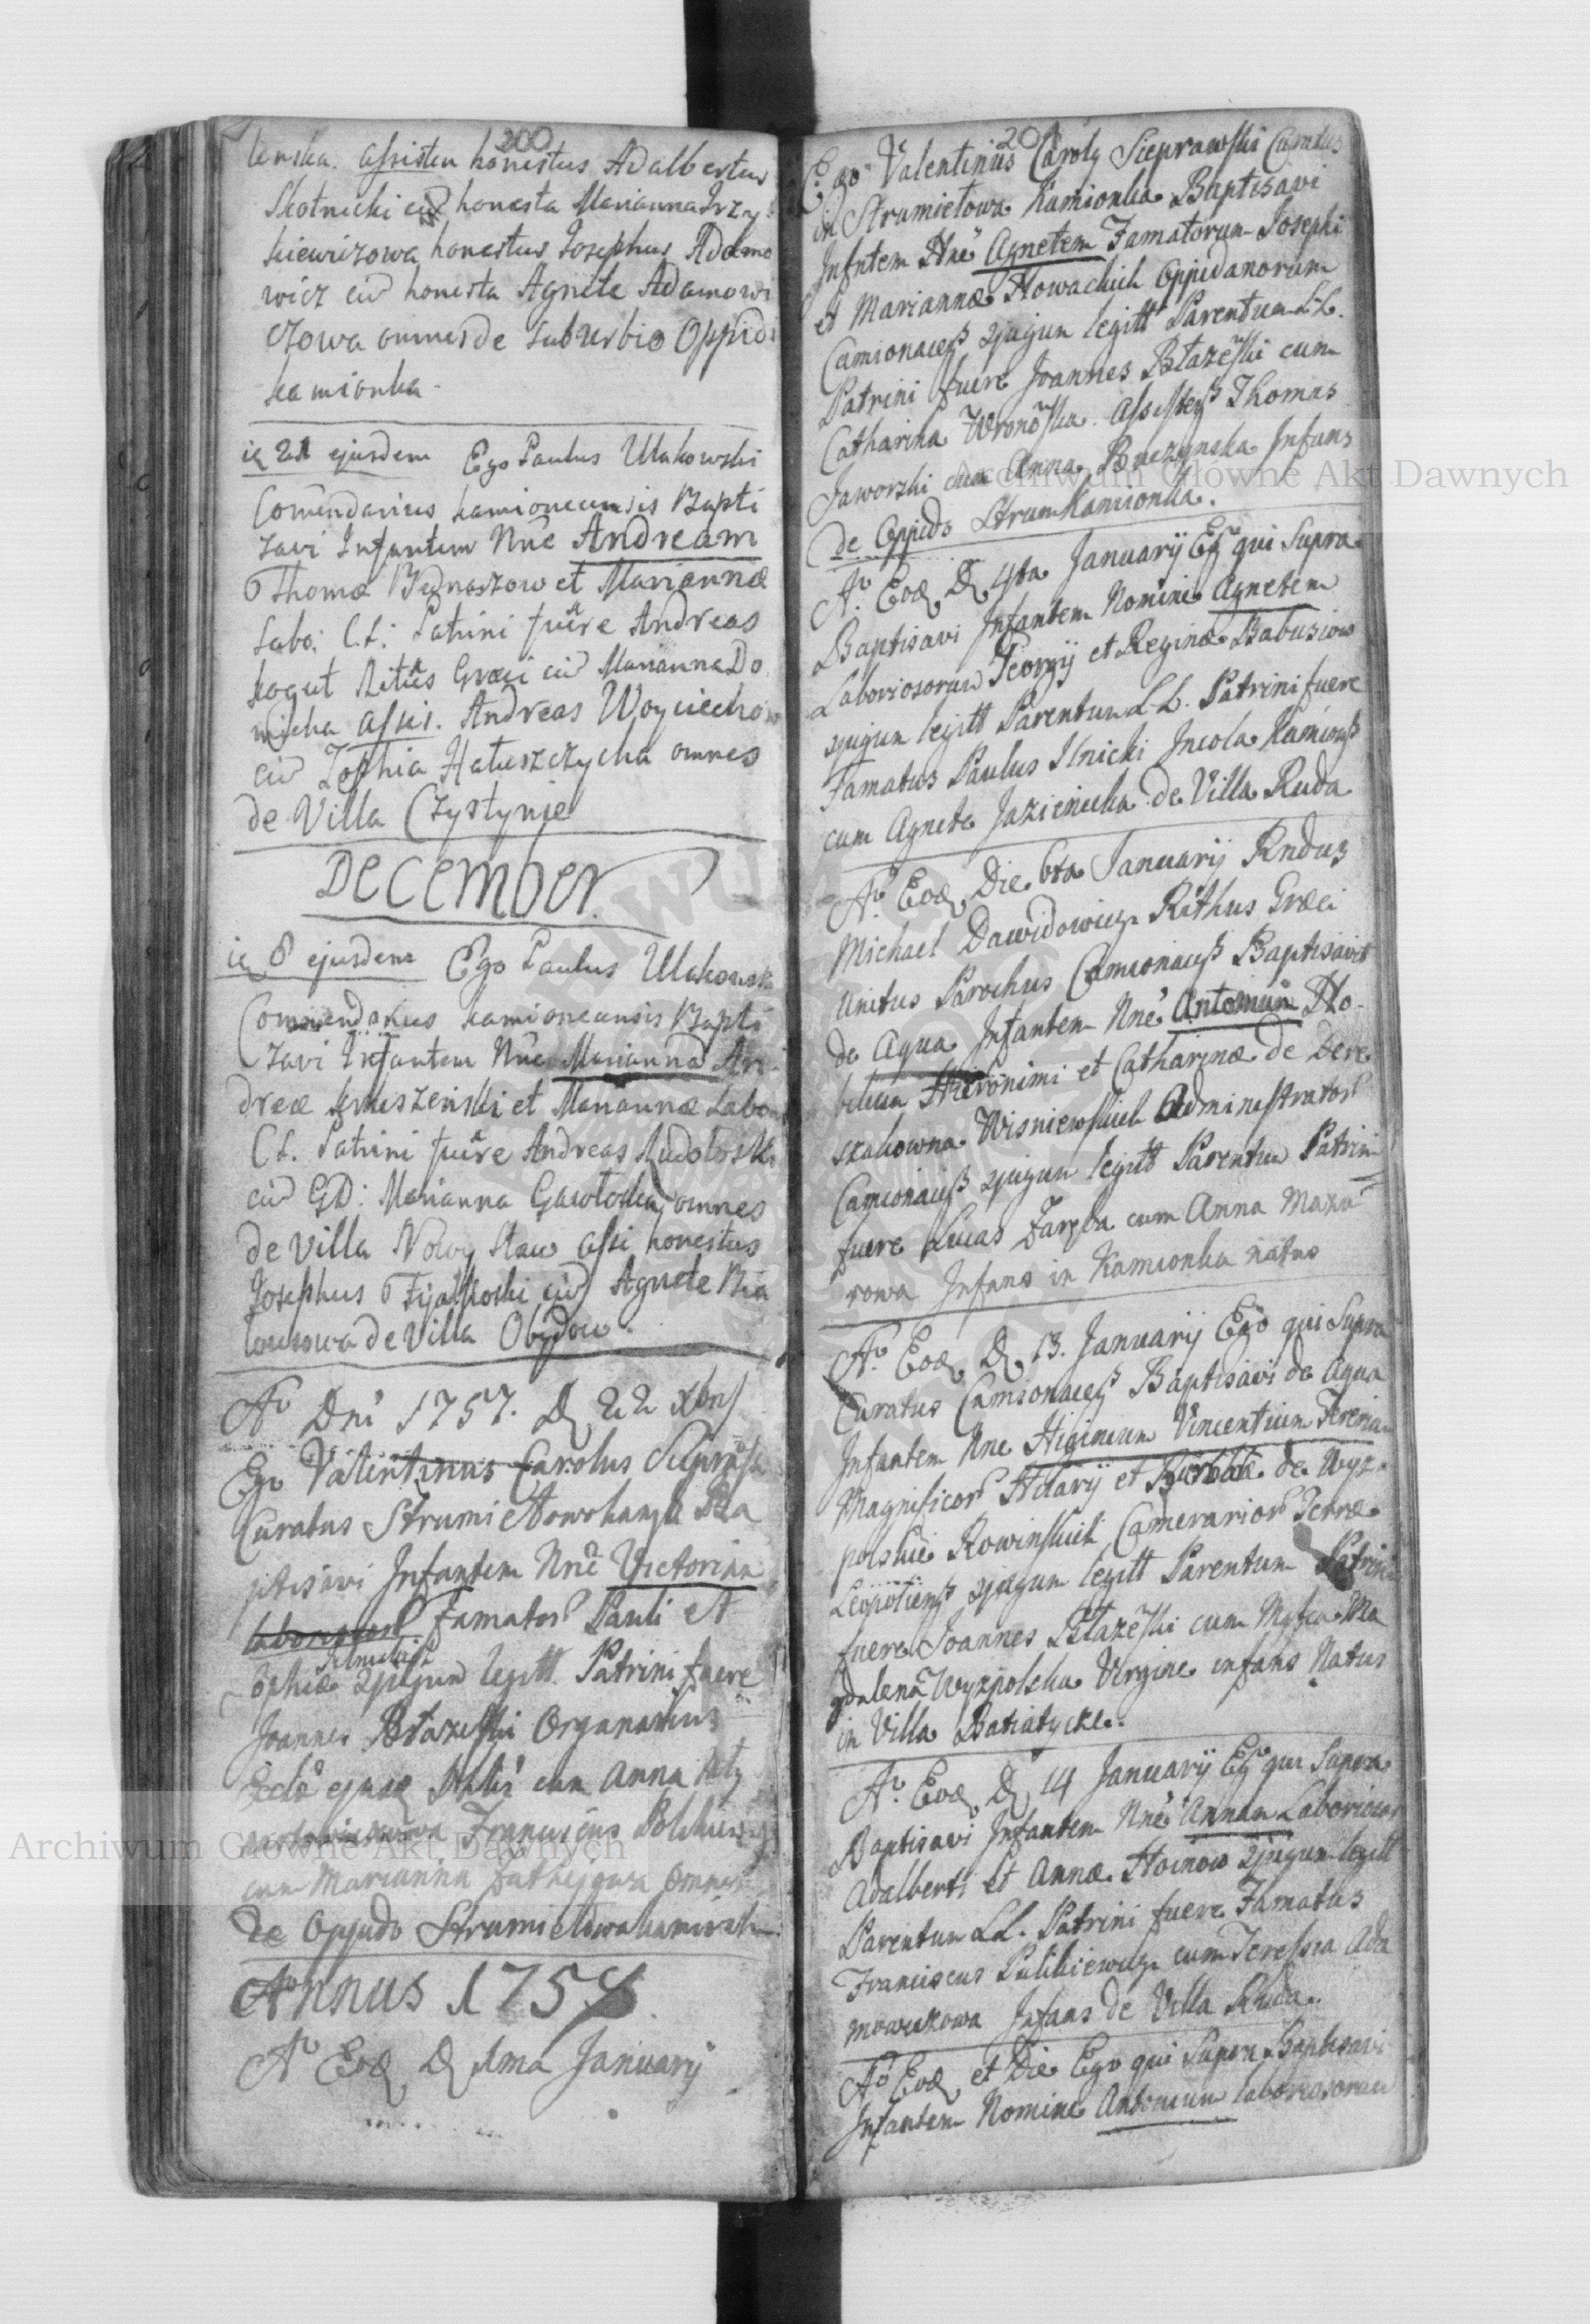 200
lenska. assisten honestus Adalbertus
Skotnicki cũ honesta Marianna Irzy
kiewiczowa honestus Josephus Adamo
wicz cũ honesta Agnete Adamowi
czowa omnes de suburbio Oppidi
Kamionka.
ie 21 ejusdem Ego Paulus Ulakowski
Comendarius Kamionecensis Bapti
zavi Infantem Nñe Andream
Thomæ Bednaszow et Mariannæ
Labo: C.L: Patrini fuere Andreas
Kogut Ritus Græci cũ Marianna Do
assis. Andreas Woyciechow
cũ Zophia Hałuszczycha omnes
de Villa Czystynie
December
ie 8 ejusdem Ego Paulus Ulakowski
Commendarius Kamionecensis Bapti
zavi Infantem Nñe Marianna An
dreæ et Mariannæ Labo
C L. Patrini fuere Andreas Rudoloski
cũ GD: Marianna omnes
de Villa Nowy Staw assi honestus
Josephus Fijałkoski cũ Agnete Bia
de Villa Obydow.
Aº Dni 1757. D 22 Xbris
Ego Valentinus Carolus
Curatus Strumiełowokam Ba
ptisavi Infantem Nne Victoriam
Famator Pauli et
ophiæ cjugum legitt. Patrini fuere
Joannes Błazeski Organarius
Eccle ejusdem cum Anna
Franciscus
cum Marianna omnes
de Oppido Strumiełowakamionka
Annus 1758
Aº Eod D 1ma Januarij
201
Ego Valentinus Caroly Sieprawski Curatus
in Strumiełowa Kamionka Baptisavi
Infntem Nne Agnetem Famatorum Josephi
et Mariannæ Nowackich Oppidanorum
Camionaceß cjugum legitt Parentum L.L.
Patrini fuere Joannes Błazeski cum
Catharina Wronoska. Assisteß Thomas
Jaworski cum Anna Brzezynska Infans
de Oppido StrumKamionka.
Aº. Eod D 4ta Januarij Eg qui Supra
Baptisavi Infantem Nomine Agnetem
Laboriosorum Georgij et Reginæ Babusiow
cjugum legitt Parentum L.L. Patrini fuere
Famatus Paulus Ilnicki Incola Kamionß
cum Agnete Jazienicka de Villa Ruda
Aº. Eod Die 6ta Januarij Rndus
Michael Dawidowicz Rithus Græci
Unitus Parochus Camionaceß Baptisavit
de Aqua Infantem Nne Antonium No-
bilium Hieronimi et Catharinæ de Dere
szakowna Wisniewskich Administrator
Camionaceß cjugum legitt Parentum Patrini
fuere Lucas Zaręba cum Anna Mazu
rowa Infans in Kamionka natus
Aº. Eod D 13. Januarij Ego qui Supra
Curatus Camionaceß Baptisavi de Aqua
Infantem Nne Higinium Vincentium Fererium
Magnificor Hilarij et Barbaræ de Wyz-
polskie Rowinskich Camerarior Terræ
Leopolienß cjugum legitt Parentum Patrini
fuere Joannes Błazeski cum Mgfca Ma
gdalena Wyzpolska Virgine infans Natus
in Villa Batiatycze.
Aº. Eod D 14 Januarij Eg qui Supra
Baptisavi Infantem Nne Annam Laborioso
Adalberti et Annæ Hoinow cjugum legitt
Parentum L.L. Patrini fuere Famatus
Franciscus Pulikiewicz cum Teressia Ada
mowiczowa Infans de Villa Ruda.
Aº Eod et Die Ego qui Supra Baptisavi
Infantem Nomine Antonium laboriosorum
Archiwum Główne Akt Dawnych
Archiwum Główne Akt Dawnych